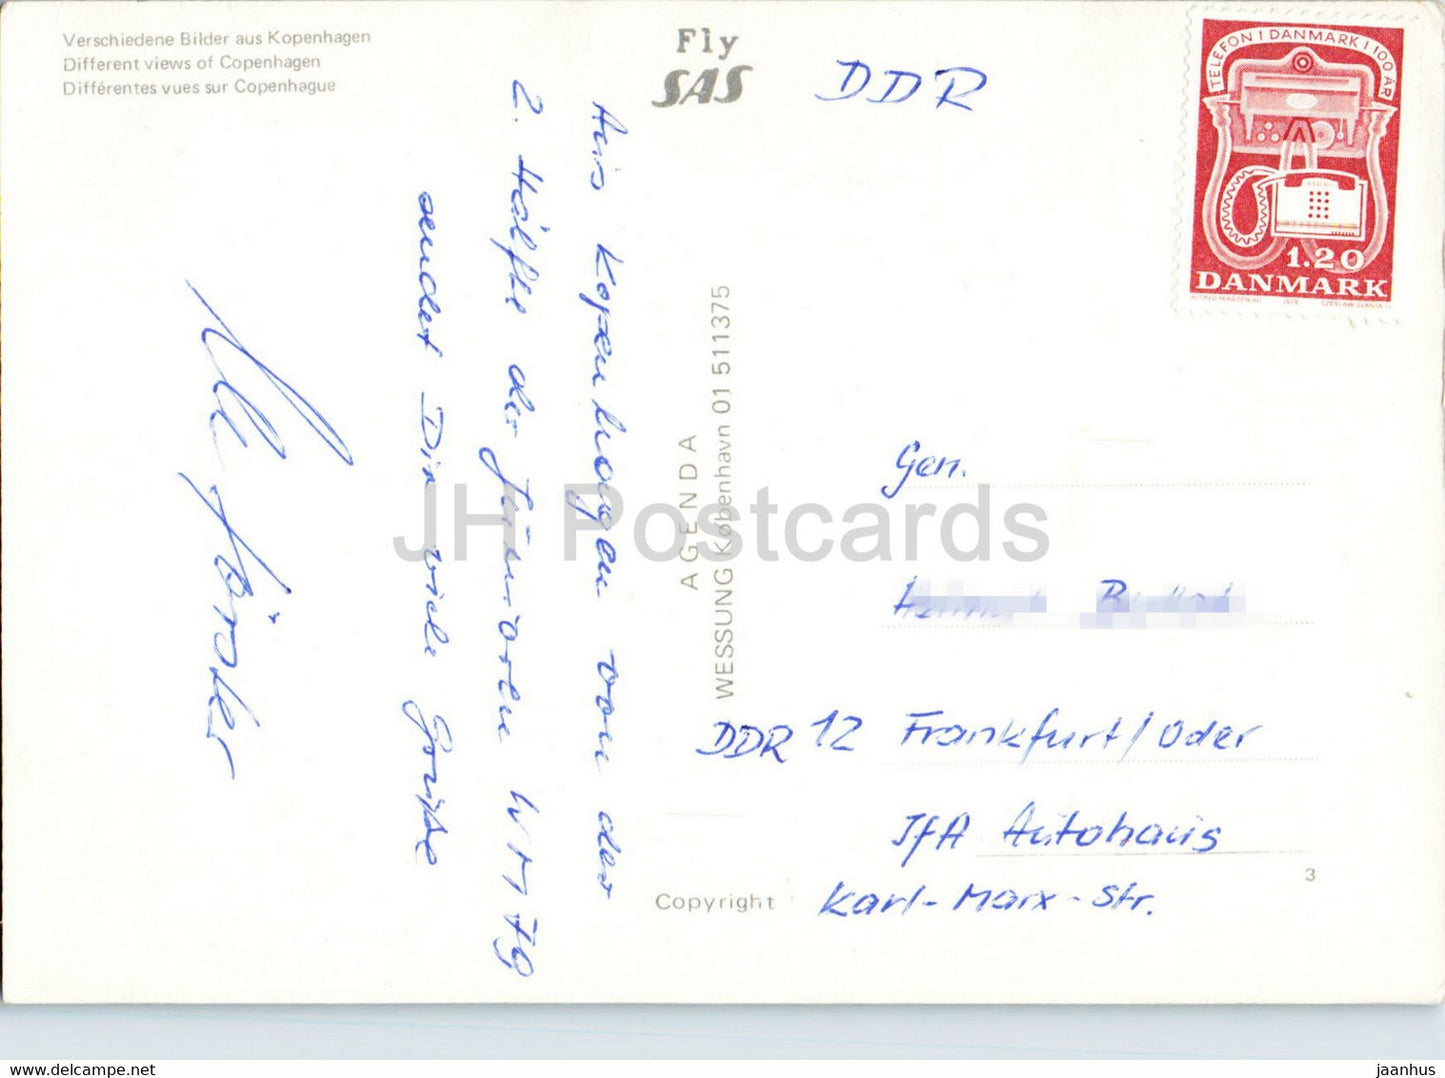 Verschiedene Bilder aus Kopenhagen
Different views of Copenhagen
Différentes vues sur Copenhague
Fly
SAS
DDR
TELEFON I DANMARK I 100 ÅR
1.20
DANMARK
1979
CZESLAW SLANIA
Aus Kopenhagen von der
2. Hälfte der Junioren WM 79
sendet Dir viele Grüße
AGENDA
WESSUNG København 01 511375
Gen.
DDR 12 Frankfurt/Oder
IfA Autohaus
Karl-Marx-Str.
Copyright
3
JH Postcards
www.hippostcard.net
jaanhus